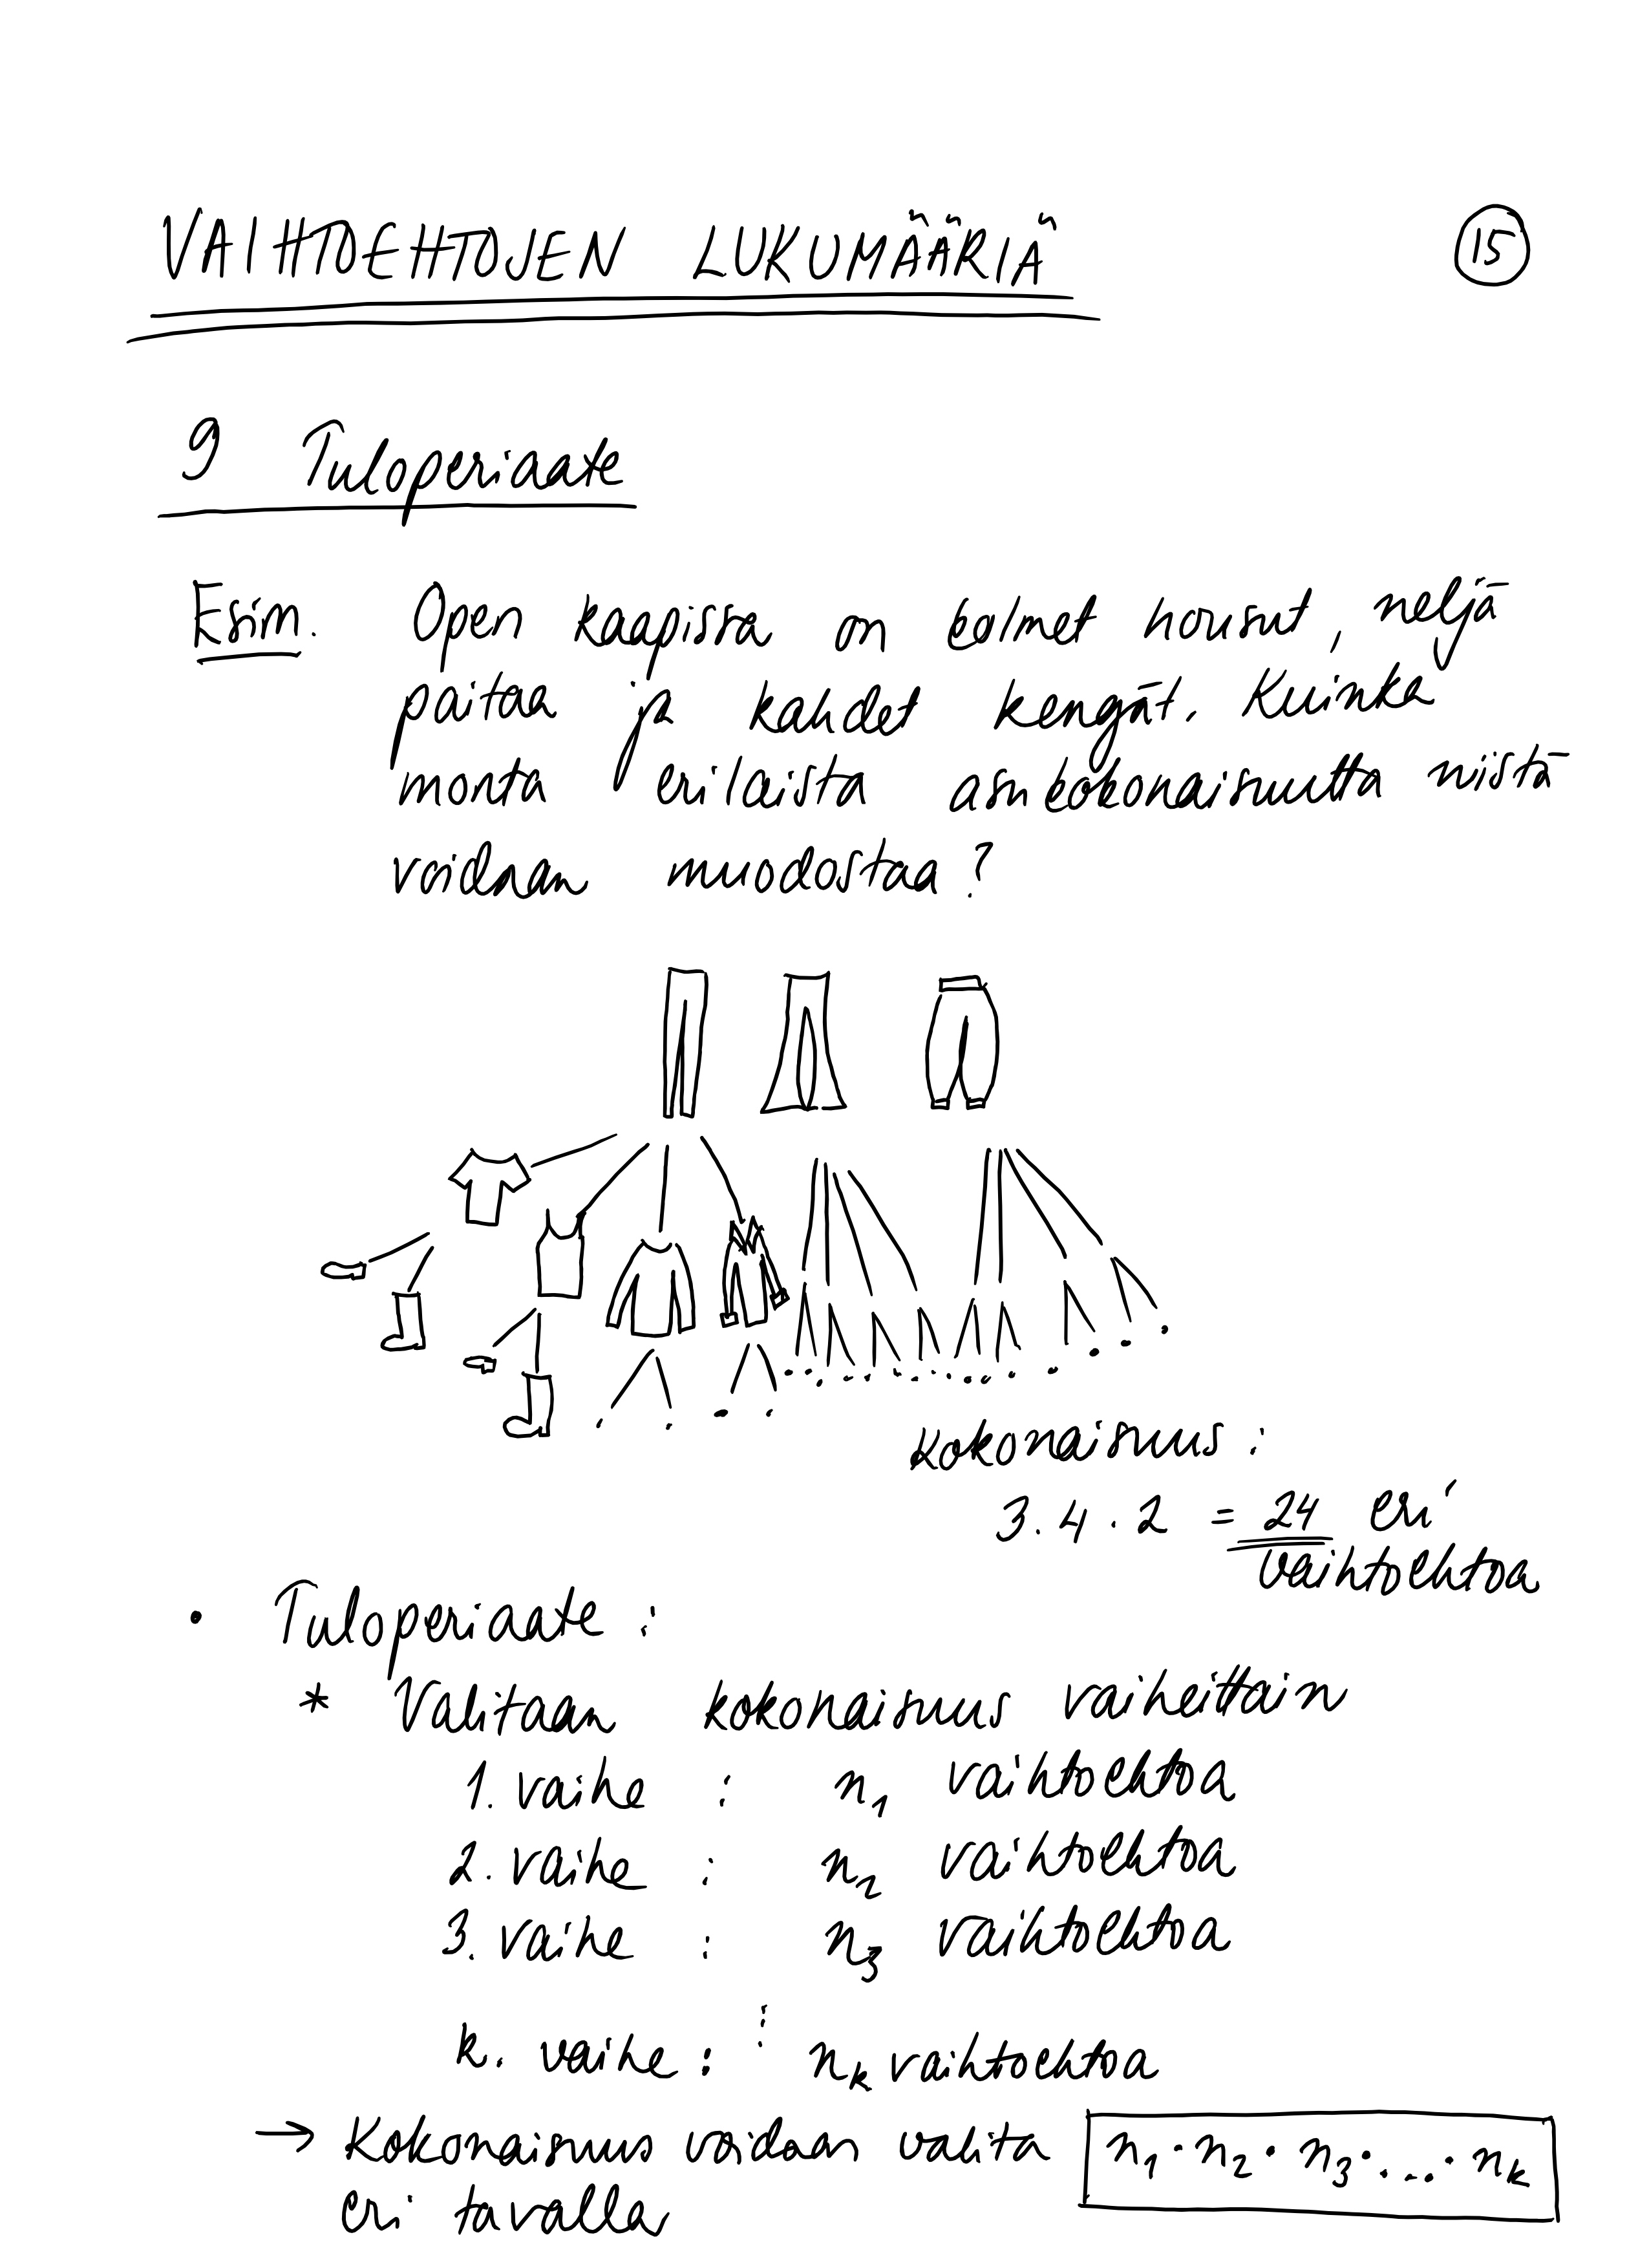 VAIHTOEHTOJEN LUKUMÄÄRIÄ
15
9 Tuloperiaate
Esim. Open kaapissa on kolmet housut, neljä
paitaa ja kahdet kengät. Kuinka
monta erilaista asukokonaisuutta niistä
voidaan muodostaa?
Kokonaisuus:
3 · 4 · 2 = 24 eri
vaihtoehtoa
• Tuloperiaate:
* Valitaan kokonaisuus vaiheittain
1. vaihe : n₁ vaihtoehtoa
2. vaihe : n₂ vaihtoehtoa
3. vaihe : n₃ vaihtoehtoa
⋮
k. vaihe : nₖ vaihtoehtoa
→ Kokonaisuus voidaan valita n₁ · n₂ · n₃ · ... · nₖ
eri tavalla